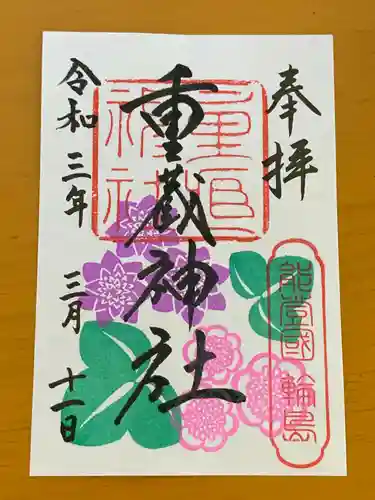 奉拝
重蔵神社
令和三年 三月 十一日
能登國 輪島